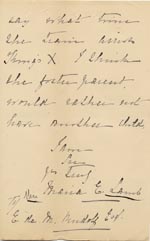 say what time
the train arrives
things X I think
the foster parent
would rather not
have another child,
I am
Sir
yrs truly
Maria E. Lamb
To Rev
E de M. Rudolf Esq.